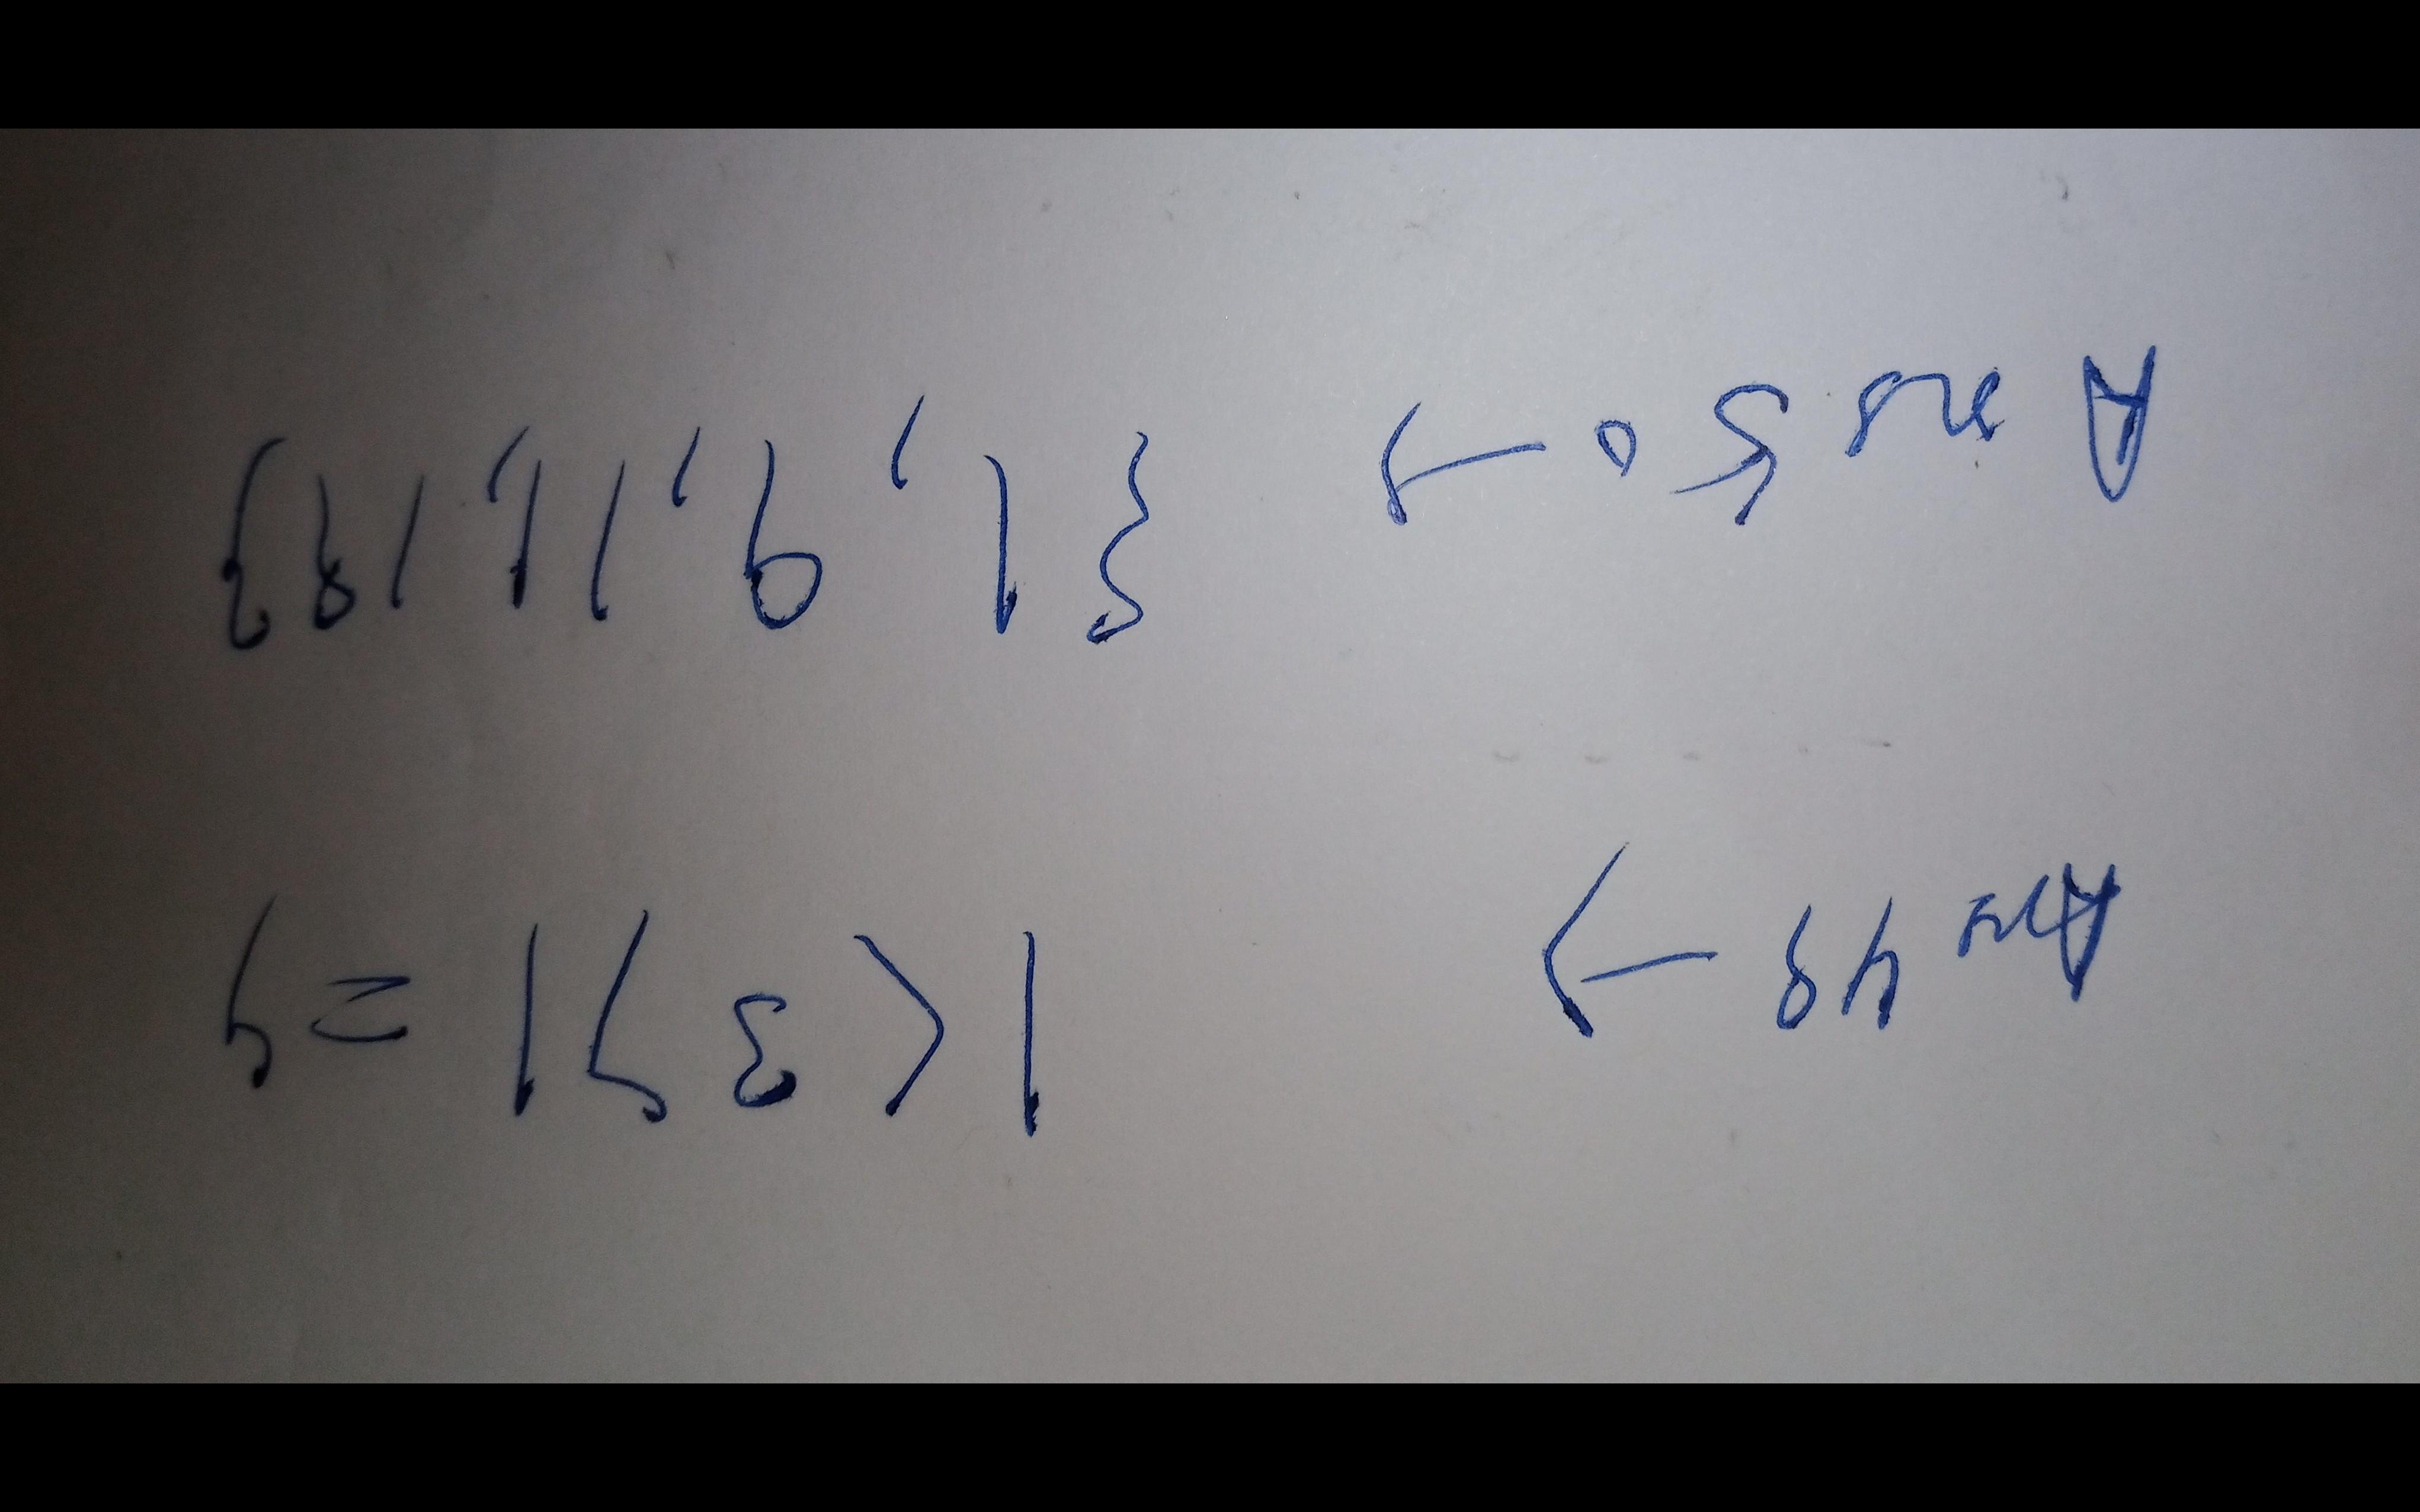 Ans 49 → |<3>| = 4
Ans 50 → {1, 9, 11, 19}